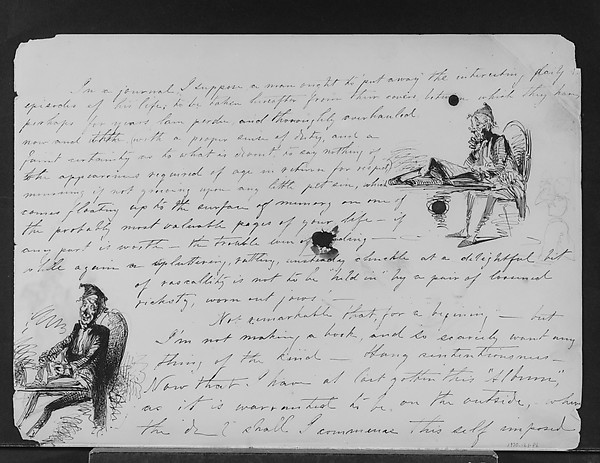 In a journal I suppose a man ought to put away the interesting daily
episodes of his life, to be taken hereafter from their covers between which they have
perhaps for years lain perdu, and thoroughly overhauled
now and with a proper sense of duty, and a
faint certainty as to what is dismal, to say nothing of
the appearances required of age in return for respect
mourning if not grieving upon any little pet sin, which
comes floating up to the surface of memory on one of
the probably most valuable pages of your life — if
any part is worth — the trouble of reading —
while again a spluttering, rattling, unsteady chuckle at a delightful bit
of rascality is not to be "held in" by a pair of loosened
rickety, worn out jaws. —
Not remarkable that, for a begining — but
I'm not making a book, and so scarcely want any
thing of the kind — Hang sententiousness —
Now that I have at last gotten this "Album",
as it is warranted to be, on the outside, when
the d— l shall I commence this self imposed